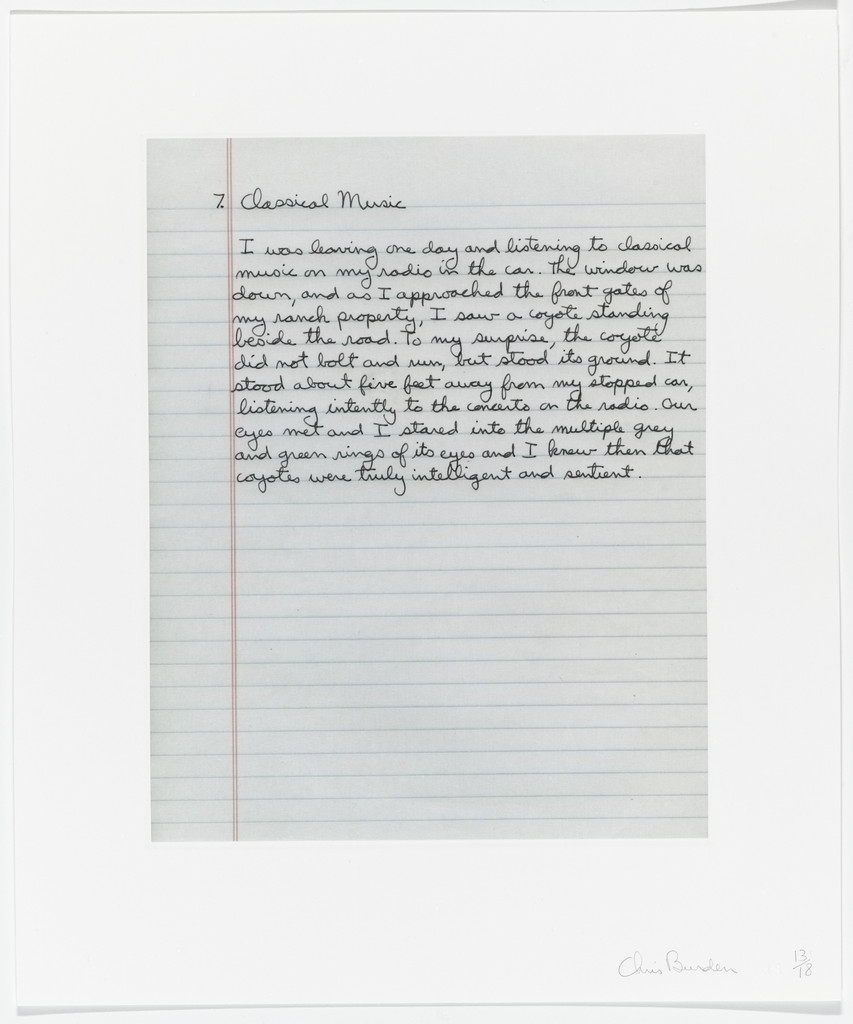 7. Classical Music
I was leaving one day and listening to classical
music on my radio in the car. The window was
down, and as I approached the front gates of
my ranch property, I saw a coyote standing
beside the road. To my surprise, the coyote
did not bolt and run, but stood its ground. It
stood about five feet away from my stopped car,
listening intently to the concerto on the radio. Our
eyes met and I stared into the multiple grey
and green rings of its eyes and I knew then that
coyotes were truly intelligent and sentient.
Chris Burden 13/18